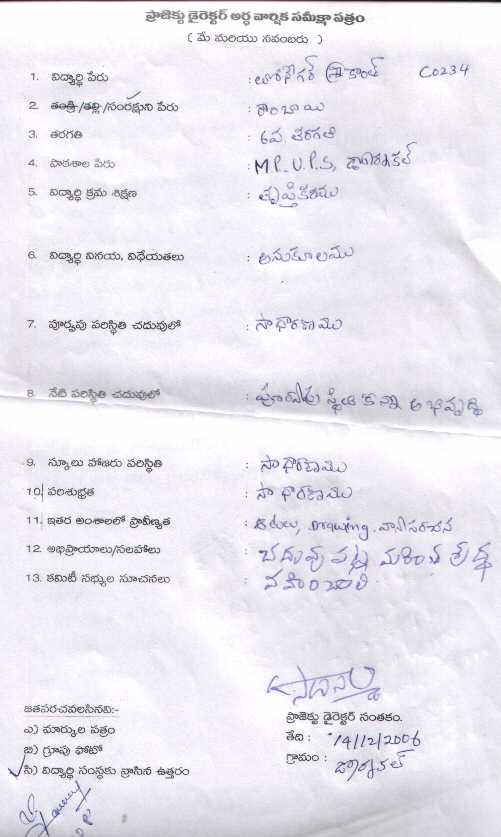 ప్రాజెక్టు డైరెక్టర్ అర్ధ వార్షిక సమీక్షా పత్రం
( మే మరియు నవంబరు )
1. విద్యార్థి పేరు : శ్రీకాంత్ C0234
2. తండ్రి/తల్లి/సంరక్షుని పేరు : రాంబాయి
3. తరగతి : 6వ తరగతి
4. పాఠశాల పేరు : M.P.U.P.S, డోర్నకల్
5. విద్యార్థి క్రమ శిక్షణ : తృప్తికరము
6. విద్యార్థి వినయ, విధేయతలు : అనుకూలము
7. పూర్వపు పరిస్థితి చదువులో : సాధారణము
8. నేటి పరిస్థితి చదువులో : పూర్వపు స్థితి కన్నా అభివృద్ధి
9. స్కూలు హాజరు పరిస్థితి : సాధారణము
10. పరిశుభ్రత : సాధారణము
11. ఇతర అంశాలలో ప్రావీణ్యత : ఆటలు, Drawing, వ్యాసరచన
12. అభిప్రాయాలు/సలహాలు : చదువు పట్ల మరింత శ్రద్ధ
13. కమిటీ సభ్యుల సూచనలు : వహించాలి
జతపరచవలసినవి:-
ఎ) మార్కుల పత్రం
బి) గ్రూపు ఫోటో
సి) విద్యార్థి సంస్థకు వ్రాసిన ఉత్తరం
ప్రాజెక్టు డైరెక్టర్ సంతకం.
తేది : 14/12/2006
గ్రామం : డోర్నకల్